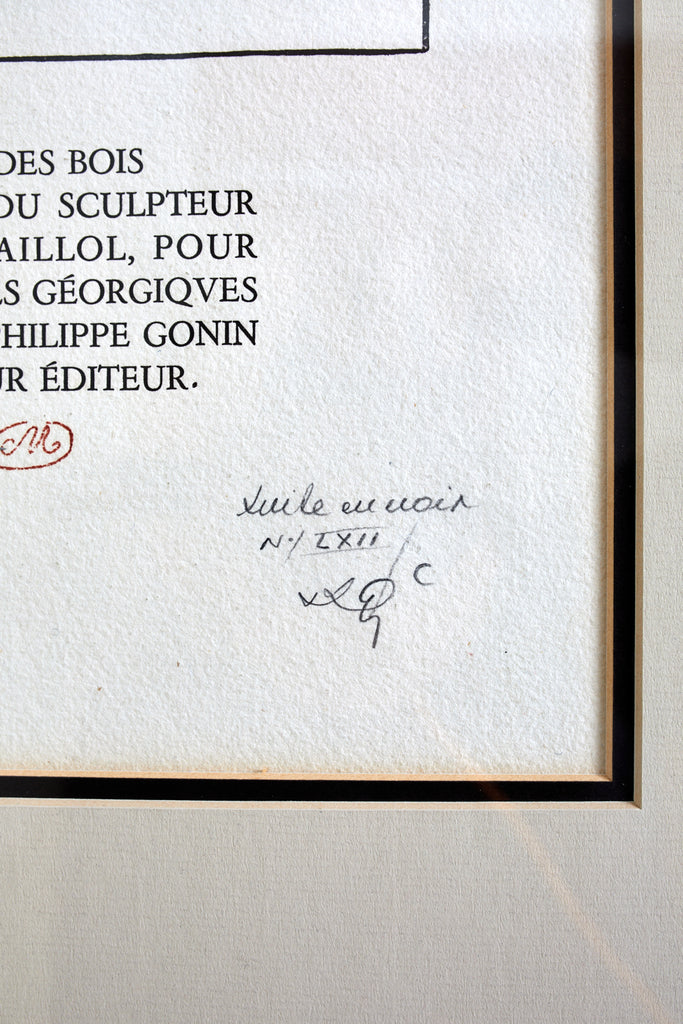 DES BOIS
DU SCULPTEUR
AILLOL, POUR
LS GÉORGIQVES
PHILIPPE GONIN
UR ÉDITEUR.
M
suite en noir
N./ LXII / C